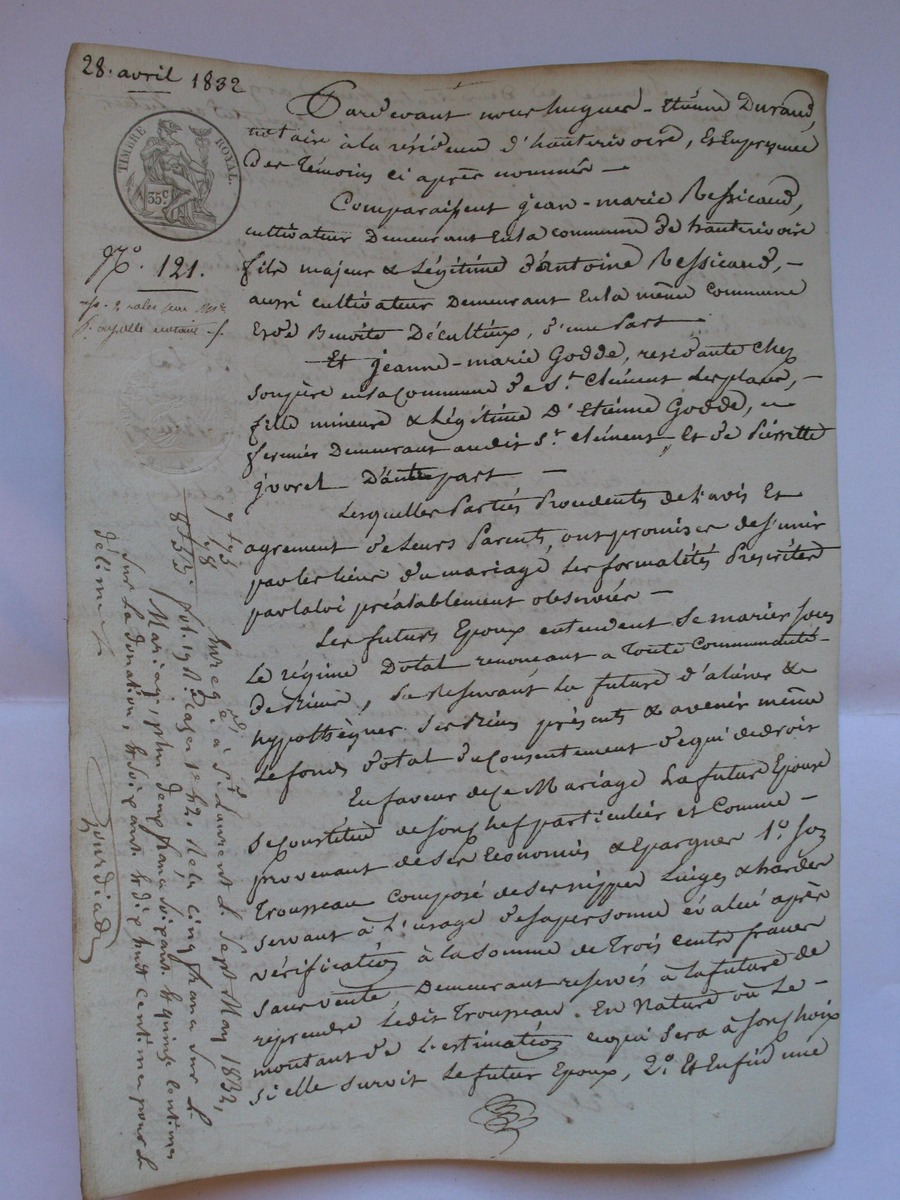 28. avril 1832
TIMBRE ROYAL.
35 c.
N.° 121.
Pardevant nous hugues-Etiène Durand,
notaire à la résidence d'hauterivoire, Et En présence
Des Témoins ci après nommés —
Comparaissent jean-marie Ressicaud,
cultivateur Demeurant En la commune De hauterivoire
fils majeur & Légitime d'antoine Ressicaud, —
aussi cultivateur Demeurant En la même Commune
Et de Benoite Décultieux, d'une Part —
Et jeanne-marie Godde, residante chez
son père en la Commune de S.t Clément Les places, —
fille mineure & Légitime D'Etiène Godde,
fermier Demeurant audit S.t clément Et de Pierrette
Dautre part —
Lesquelles Parties Procedentes de L'avis Et
agrement de Leurs Parents, ont promis se de s'unir
par les liens du mariage Les formalités Prescrites
par la loi préalablement observées —
Les futurs Epoux entendent Se marier sous
Le régime Dotal renonceant a Toute Communauté
De Biens, Se Reservant La future d'aliéner &
hypothèquer Ses Biens présents & avenir même
Le fonds dotal du Consentement de qui de droit
En faveur de Ce Mariage La future Epouse
Se Constitue de son Chef particulier et Comme —
Provenant de Ses Economies & Epargnes 1.° Son
Trousseau Composé de Ses nippes Linges & hardes
Servant à L'usage de Sa personne évalué après
vérification à La Somme de Trois Cents francs
Sans vente Demeurant reservés à La future de
reprendre Ledit Trousseau En Nature ou Le —
montant de L'estimation ce qui Sera à Son choix
Si elle Survit Le futur Epoux, 2.° Et Enfin une
Enreg.é à S.t Laurent L. Sept May 1832,
fol. 198 Cases 1 et 2. Reçu Cinq francs Sur L
Mariage, plus deux francs Soixante & quinze Centimes
Sur La donation, & Soixante & dix huit Centimes pour L
décime.